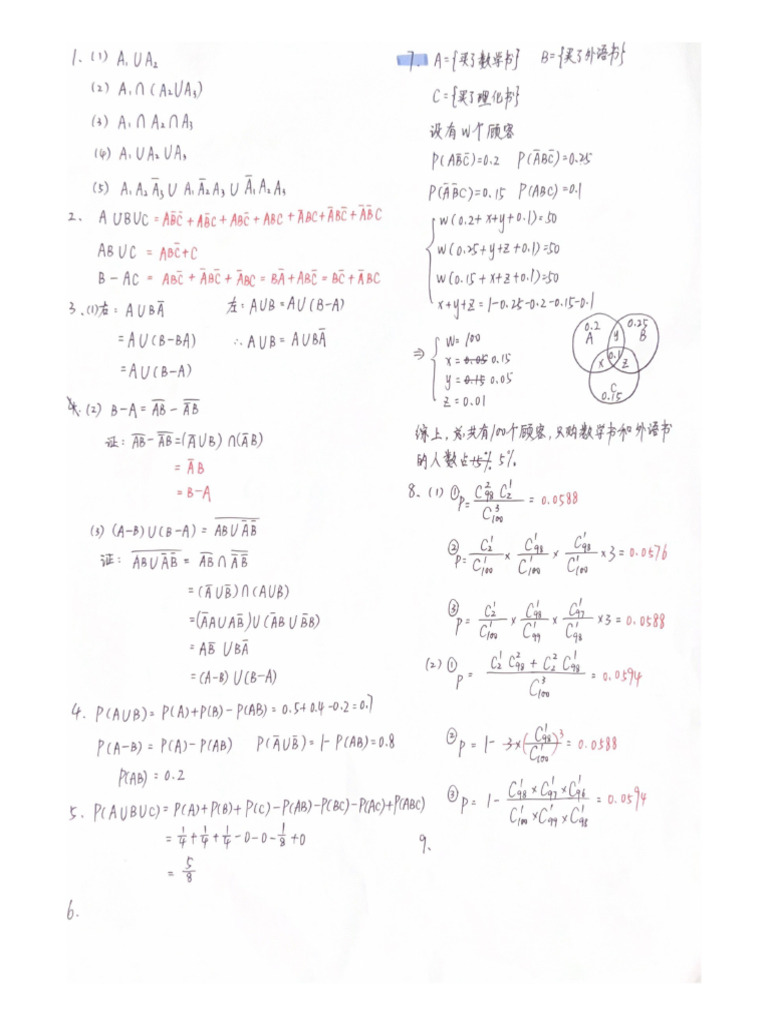 1. (1) A₁∪A₂
(2) A₁∩(A₂∪A₃)
(3) A₁∩A₂∩A₃
(4) A₁∪A₂∪A₃
(5) A₁A₂A̅₃∪A₁A̅₂A₃∪A̅₁A₂A₃
2. A∪B∪C=AB̅C̅+AB̅C+ABC̅+ABC+A̅BC+A̅BC̅+A̅B̅C
AB∪C=ABC̅+C
B-AC=ABC̅+A̅BC̅+A̅BC=BA̅+ABC̅=BC̅+A̅BC
3. (1)右=A∪BA̅ 左=A∪B=A∪(B-A)
=A∪(B-BA) ∴A∪B=A∪BA̅
=A∪(B-A)
(2) B-A=\overline{AB}-\overline{A̅B̅}
证:\overline{AB}-\overline{A̅B̅}=(A̅∪B̅)∩(A̅B)
=A̅B
=B-A
(3) (A-B)∪(B-A)=\overline{AB∪A̅B̅}
证:\overline{AB∪A̅B̅}=\overline{AB}∩\overline{A̅B̅}
=(A̅∪B̅)∩(A∪B)
=(A̅A∪AB̅)∪(A̅B∪B̅B)
=AB̅∪BA̅
=(A-B)∪(B-A)
4. P(A∪B)=P(A)+P(B)-P(AB)=0.5+0.4-0.2=0.7
P(A-B)=P(A)-P(AB) P(A̅∪B̅)=1-P(AB)=0.8
P(AB)=0.2
5. P(A∪B∪C)=P(A)+P(B)+P(C)-P(AB)-P(BC)-P(AC)+P(ABC)
=1/4+1/4+1/4-0-0-1/8+0
=5/8
6.
7. A={买了数学书} B={买了外语书}
C={买了理化书}
设有W个顾客
P(AB̅C̅)=0.2 P(A̅BC̅)=0.25
P(A̅B̅C)=0.15 P(ABC)=0.1
W(0.2+x+y+0.1)=50
W(0.25+y+z+0.1)=50
W(0.15+x+z+0.1)=50
x+y+z=1-0.25-0.2-0.15-0.1
⇒ W=100
x=0.05 0.15
y=0.15 0.05
z=0.01
0.2 0.25
A y B
0.1
x z
C
0.15
综上,总共有100个顾客,只购数学书和外语书
的人数占15% 5%
8. (1) ① P=C₉₈²C₂¹/C₁₀₀³=0.0588
② P=C₂¹/C₁₀₀¹×C₉₈¹/C₁₀₀¹×C₉₈¹/C₁₀₀¹×3=0.0576
③ P=C₂¹/C₁₀₀¹×C₉₈¹/C₉₉¹×C₉₇¹/C₉₈¹×3=0.0588
(2) ① P=(C₂¹C₉₈²+C₂²C₉₈¹)/C₁₀₀³=0.0594
② P=1-3×(C₉₈¹/C₁₀₀¹)³=0.0588
③ P=1-(C₉₈¹×C₉₇¹×C₉₆¹)/(C₁₀₀¹×C₉₉¹×C₉₈¹)=0.0594
9.